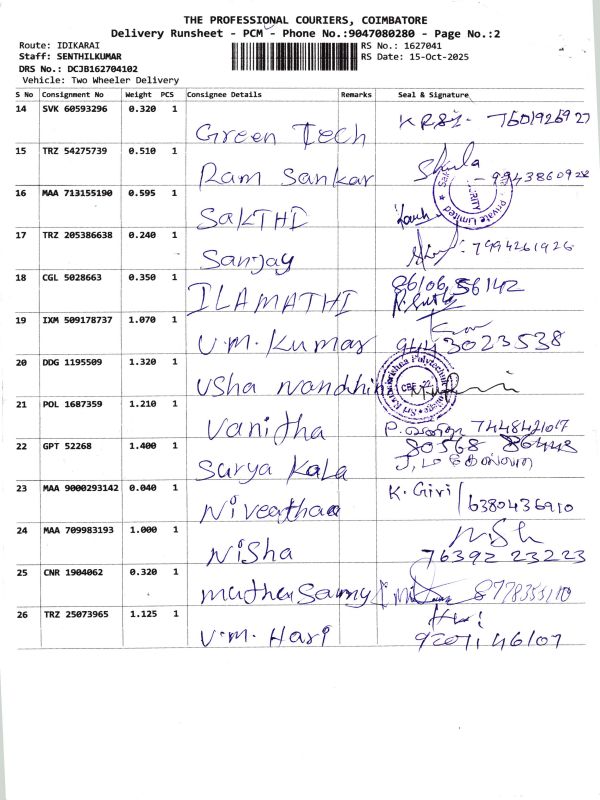 THE PROFESSIONAL COURIERS, COIMBATORE
Delivery Runsheet - PCM - Phone No.:9047080280 - Page No.:2
Route: IDIKARAI RS No.: 1627041
Staff: SENTHILKUMAR RS Date: 15-Oct-2025
DRS No.: DCJB162704102
Vehicle: Two Wheeler Delivery
S No Consignment No Weight PCS Consignee Details Remarks Seal & Signature
14 SVK 60593296 0.320 1 Green Tech KRSI- 7601926927
15 TRZ 54275739 0.510 1 Ram Sankar - 9943860928
16 MAA 713155190 0.595 1 SAKTHI Private Limited
17 TRZ 205386638 0.240 1 Sanjay : 7994261926
18 CGL 5028663 0.350 1 ILAMATHI 86106 56142
19 IXM 509178737 1.070 1 V.M. Kumar 9443023538
20 DDG 1195509 1.320 1 Usha Nandhin CBE -22
21 POL 1687359 1.210 1 Vanitha P. 7448421017
22 GPT 52268 1.400 1 Surya Kala 80568 86448
23 MAA 9000293142 0.040 1 Niveathaa K. Giri / 6380436910
24 MAA 709983193 1.000 1 Nisha 76392 23223
25 CNR 1904062 0.320 1 muthu Samy 8778355110
26 TRZ 25073965 1.125 1 V.M. Hari